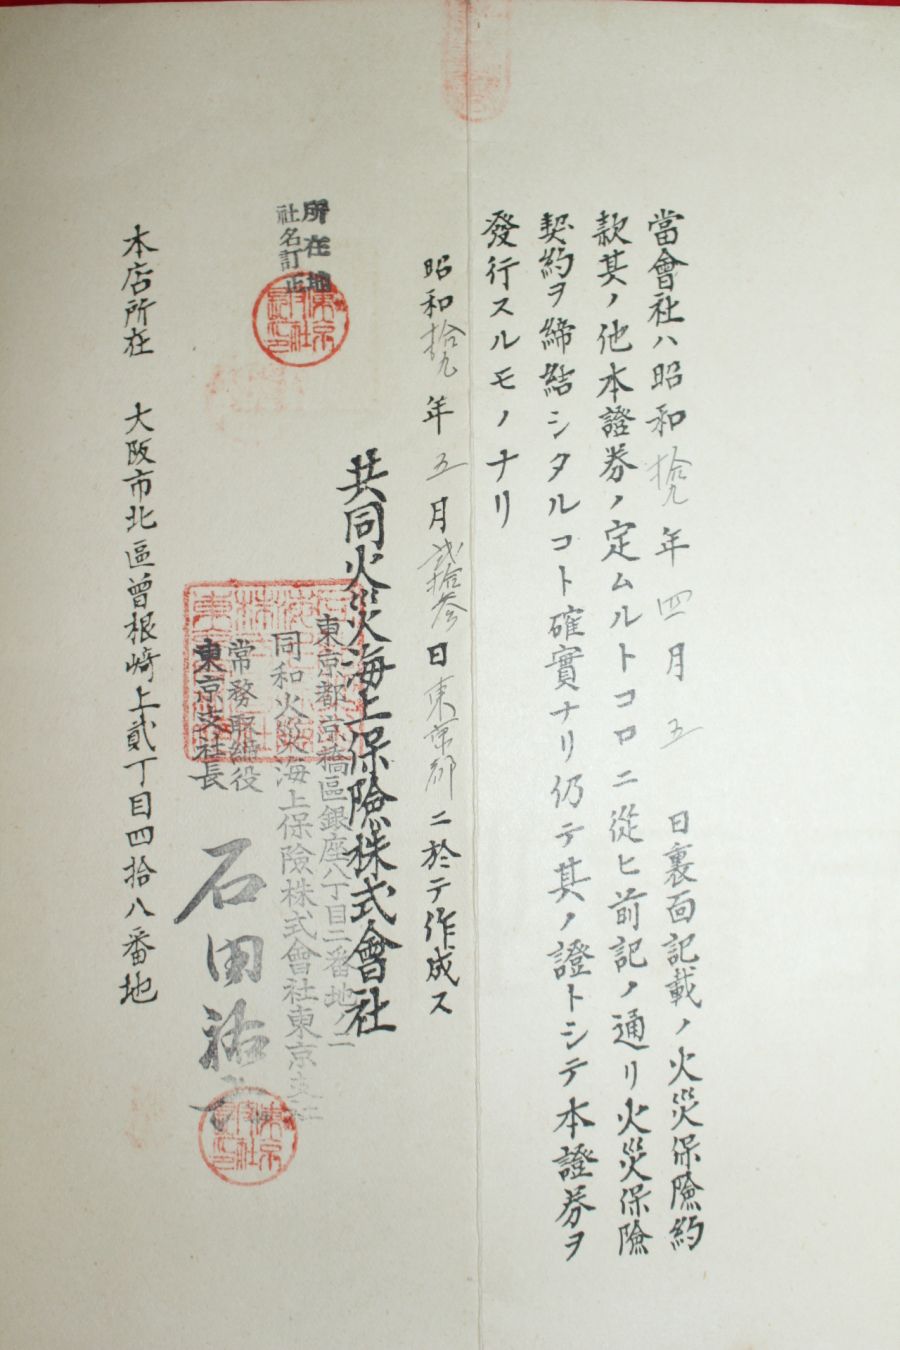 當會社ハ昭和拾九年四月五日裏面記載ノ火災保險約
款其ノ他本證券ノ定ムルトコロニ從ヒ前記ノ通リ火災保險
契約ヲ締結シタルコト確實ナリ仍テ其ノ證トシテ本證券ヲ
發行スルモノナリ
昭和拾九年五月貳拾參日東京都ニ於テ作成ス
共同火災海上保險株式會社
所在地
社名訂正
東京都京橋區銀座八丁目二番地ノ二
同和火災海上保險株式會社東京支社
常務取締役
東京支社長
石田祐
本店所在 大阪市北區曾根崎上貳丁目四拾八番地